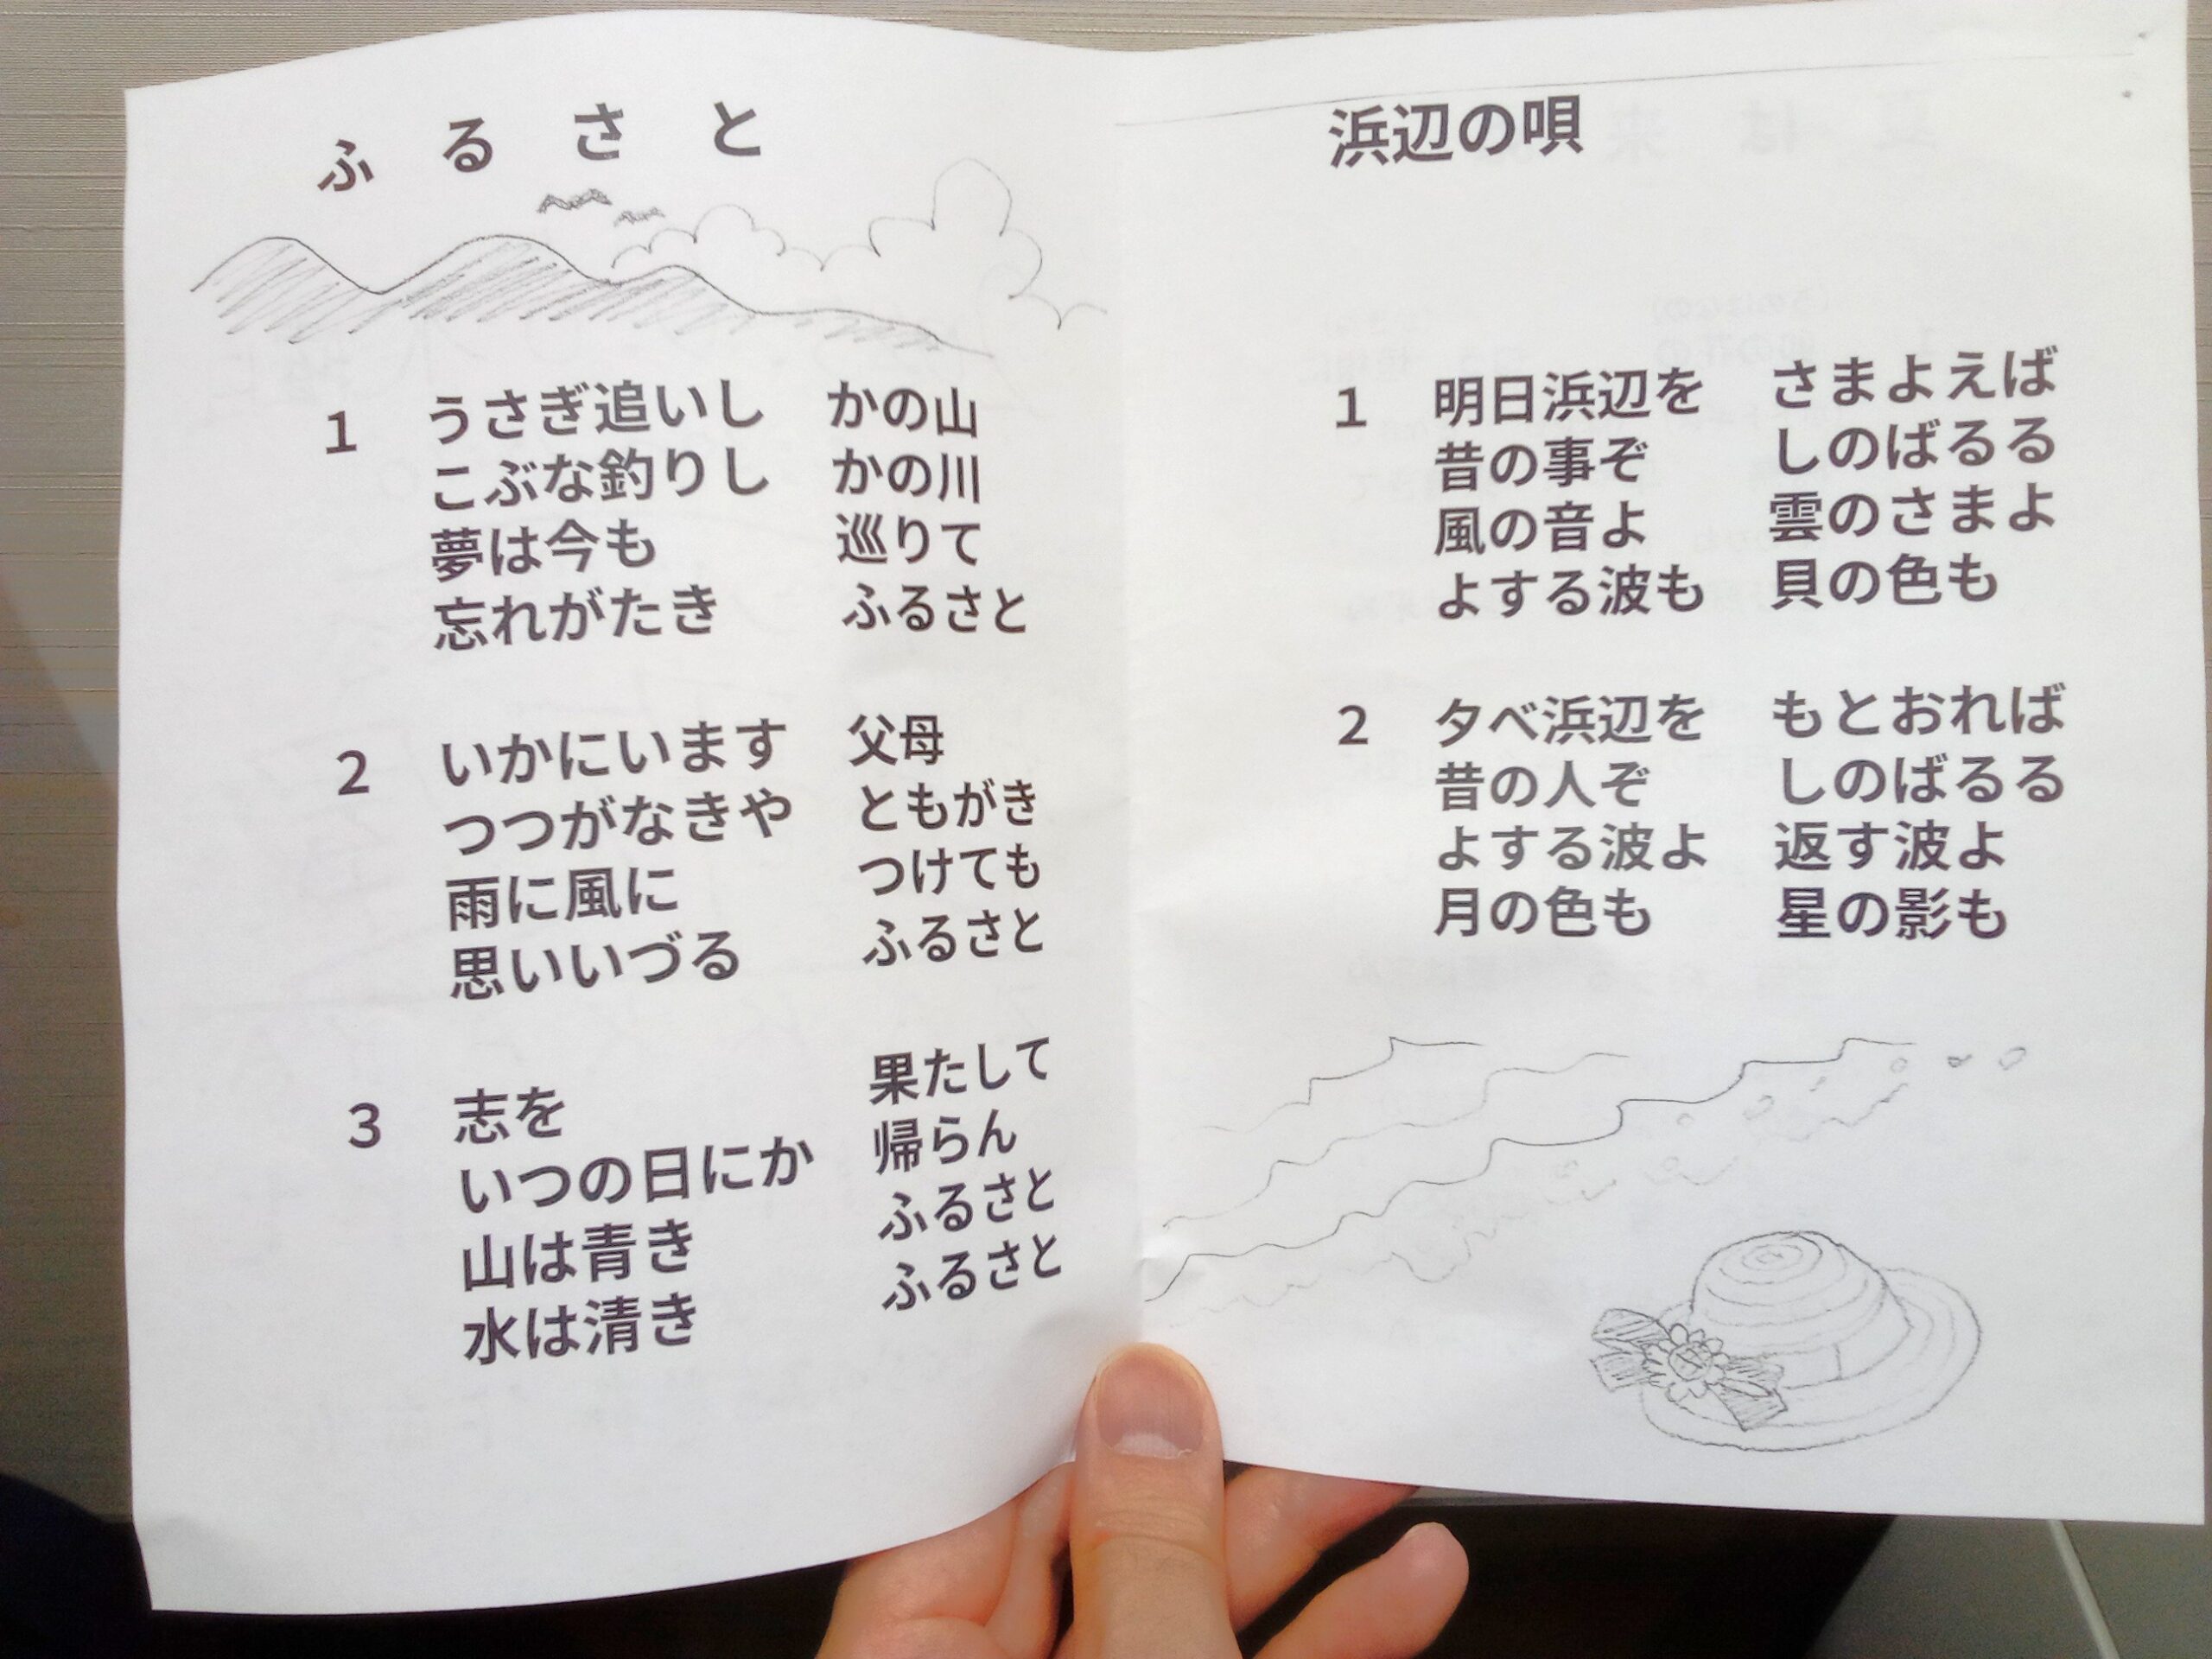 ふるさと
1 うさぎ追いし かの山
こぶな釣りし かの川
夢は今も 巡りて
忘れがたき ふるさと
2 いかにいます 父母
つつがなきや ともがき
雨に風に つけても
思いいづる ふるさと
3 志を 果たして
いつの日にか 帰らん
山は青き ふるさと
水は清き ふるさと
浜辺の唄
1 明日浜辺を さまよえば
昔の事ぞ しのばるる
風の音よ 雲のさまよ
よする波も 貝の色も
2 夕べ浜辺を もとおれば
昔の人ぞ しのばるる
よする波よ 返す波よ
月の色も 星の影も